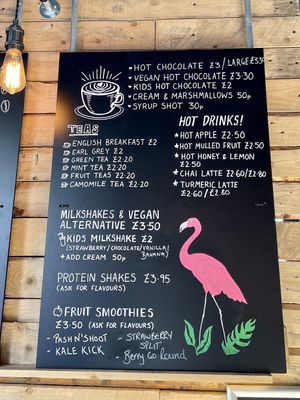 HOT CHOCOLATE £3/LARGE £3.50
VEGAN HOT CHOCOLATE £3.30
KIDS HOT CHOCOLATE £2
CREAM & MARSHMALLOWS 50p
SYRUP SHOT 30p
TEAS
ENGLISH BREAKFAST £2
EARL GREY £2
GREEN TEA £2.20
MINT TEA £2.20
FRUIT TEAS £2.20
CAMOMILE TEA £2.20
HOT DRINKS!
HOT APPLE £2.50
HOT MULLED FRUIT £2.50
HOT HONEY & LEMON
£2.50
CHAI LATTE £2.60/£2.80
TURMERIC LATTE
£2.60/£2.80
MILKSHAKES & VEGAN
ALTERNATIVE £3.50
KIDS MILKSHAKE £2
(STRAWBERRY/CHOCOLATE/VANILLA/
BANANA)
+ ADD CREAM 50p
PROTEIN SHAKES £3.95
(ASK FOR FLAVOURS)
FRUIT SMOOTHIES
£3.50 (ASK FOR FLAVOURS)
- PASH N' SHOOT
- KALE KICK
- STRAWBERRY
SPLIT
- Berry Go Round